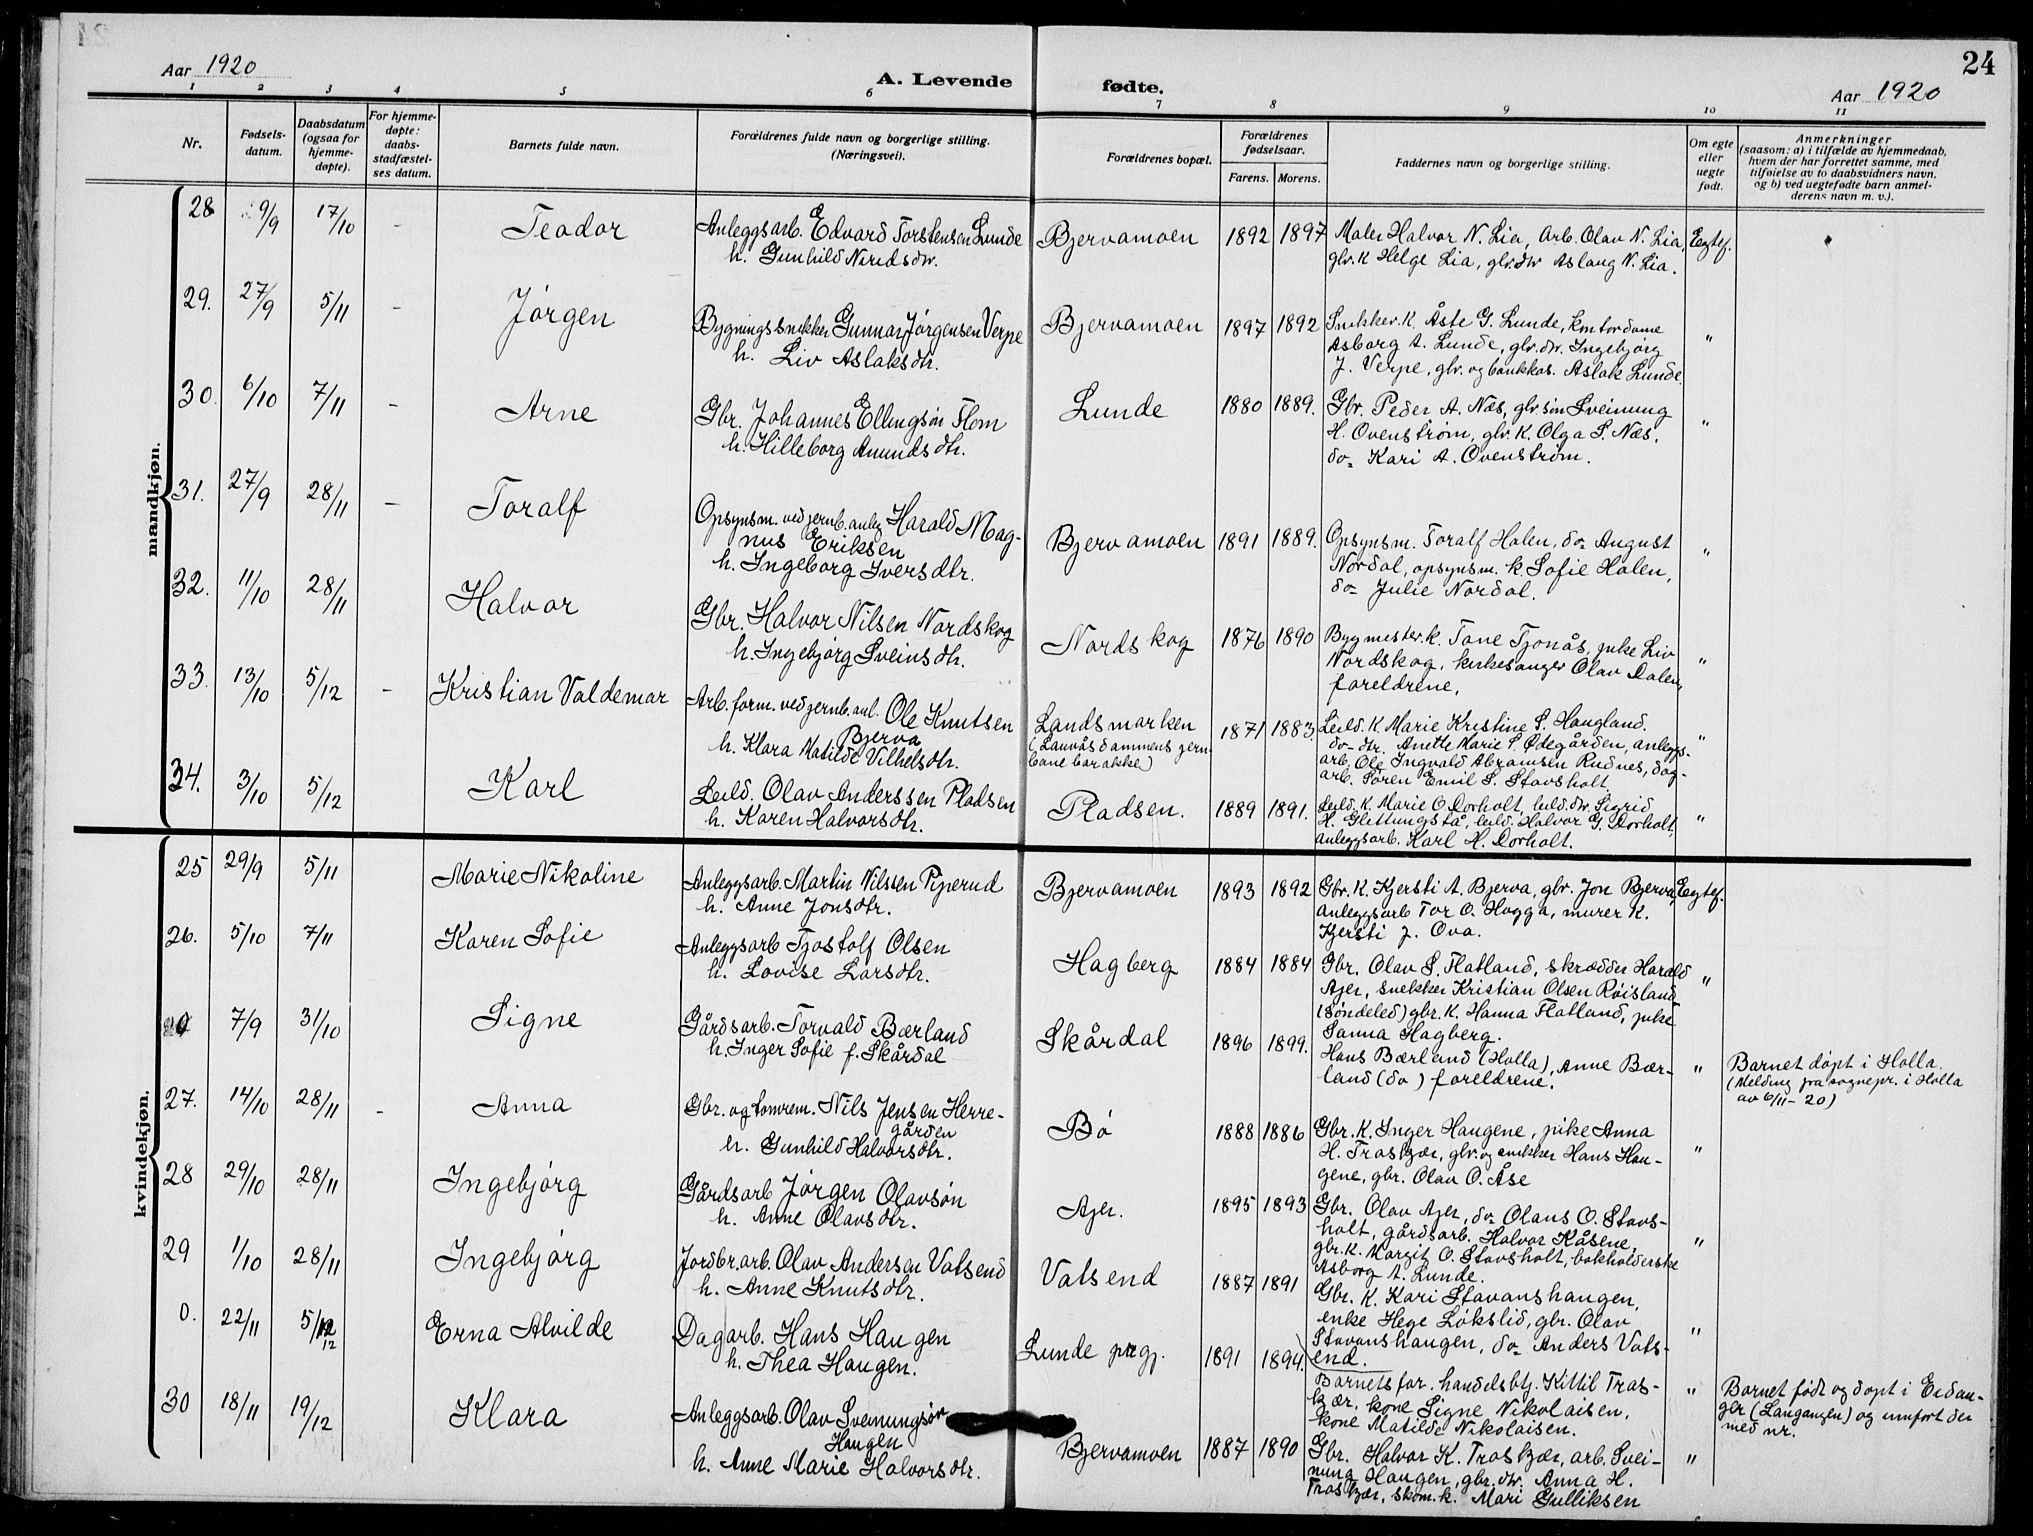 24
Aar 1920
A. Levende fødte.
Aar 1920
1 2 3 4 5 6 7 8 9 10 11
Nr.
Fødsels-
datum.
Daabsdatum
(ogsaa for
hjemme-
døpte).
For hjemme-
døpte:
daabs-
stadfæstel-
ses datum.
Barnets fulde navn.
Forældrenes fulde navn og borgerlige stilling.
(Næringsveil.
Forældrenes bopæl.
Forældrenes
fødselsaar.
Farens. Morens.
Faddernes navn og borgerlige stilling.
Om egte
eller
uegte
født.
Anmerkninger
(saasom: a) i tilfælde av hjemmedaab,
hvem der har forrettet samme, med
tilføielse av to daabsvidners navn,
og b) ved uegtefødte barn anmel-
derens navn m. v.).
mandkjøn.
28 9/9 17/10 - Teodor
Anleggsarb. Edvard Torstensen Lunde
h. Gunhild Nirids dtr.
Bjervamoen 1892 1897
Maler Halvor N. Lia, Arb. Olav N. Lia,
glr. k Helge Lia, glr. dtr Aslaug N. Lia.
Egtef.
29. 27/9 5/11 - Jørgen
Bygningssnekker Gunnar Jørgensen Verpe
h. Liv Aslaksdtr.
Bjervamoen 1897 1892
Snekker. k. Åste G. Lunde, kontordame
Asborg A. Lunde, glr. dtr. Ingebjørg
J. Verpe, glr. og bankkas. Aslak Lunde.
"
30. 6/10 7/11 - Arne
Gbr. Johannes Ellingsøn Flom
h. Hilleborg Amunds dtr.
Lunde 1880 1889.
Gbr. Peder A. Næs, glr. søn Sveinung
H. Ovenstrøm, glr. K. Olga S. Næs,
do- Kari A. Ovenstrøm.
"
31. 27/9 28/11 - Toralf
Opsynsm. ved jernb. anleg Harald Mag-
nus Eriksen
h. Ingeborg Iversdtr.
Bjervamoen 1891 1889.
Opsynsm. Toralf Halen, do- August
Nordal, opsynsm. k. Sofie Halen,
do- Julie Nordal.
"
32. 11/10 28/11 Halvor
Gbr. Halvor Nilsen Nordskog
h. Ingebjørg Sveinsdtr.
Nordskog 1876 1890
Bygmester. k. Tone Tjonås, pike Liv
Nordskog, kirkesanger Olav Dalen,
foreldrene.
"
33. 13/10 5/12 - Kristian Valdemar
Arb. form. ved jernb. anl. Ole Knutsen
Bjerva
h. Klara Matilde Vilhelsdtr.
Landsmarken
(Lauvåsdammens jern-
bane barakke)
1871 1883.
Leild. K. Marie Kristine S. Haugland.
do- dtr. Anette Marie S. Ødegården, anleggs-
arb. Ole Ingvald Abramsen Rudnes, dag-
arb. Søren Emil S. Stavsholt
"
34. 3/10 5/12 Karl
Leild. Olav Anderssen Pladsen
h. Karen Halvorsdtr.
Pladsen. 1889 1891.
Leild. K. Marie O Dorholt, leild. dtr. Sigrid
H. Glettungstå, leild. Halvor G. Dorholt,
anleggsarb. Karl H. Dorholt.
"
kvindekjøn.
25 29/9 5/11 Marie Nikoline
Anleggsarb. Martin Nilssen Piperud
h. Anne Jonsdtr.
Bjervamoen 1893 1892
Gbr. K. Kjersti A. Bjerva, gbr. Jon Bjerva,
anleggsarb Tor O. Hogga, murer K.
Kjersti J. Ova.
Egtef.
26. 5/10 7/11 Karen Sofie
Anleggsarb Tjostolf Olsen
h. Lovise Larsdtr.
Hagberg 1884 1884
Gbr. Olav S. Flatland, skrædder Harald
Ajer, snekker Kristian Olsen Røisland
(Søndeled) gbr. K. Hanna Flatland, pike
Sanna Hagberg.
"
0 7/9 31/10 Signe
Gårdsarb. Torvald Bærland
h. Inger Sofie f. Skårdal
Skårdal 1896 1899.
Hans Bærland (Holla), Anne Bær-
land (do) foreldrene.
"
Barnet døpt i Holla.
(Melding fra sognepr. i Holla
av 6/11-20)
27. 14/10 28/11 - Anna
Gbr. og tømrem. Nils Jensen Herre-
gården
h. Gunhild Halvorsdtr.
Bø 1888 1886
Gbr. K. Inger Haugene, pike Anna
H. Traskjær, glr. og snekker Hans Hau-
gene, gbr. Olav O. Åse
"
28 29/10 28/11 Ingebjørg
Gårdsarb Jørgen Olavsøn
h. Anne Olavsdtr.
Ajer. 1895 1893
Gbr. Olav Ajer, do- Olaus O. Stavs-
holt, gårdsarb. Halvor Kåsene,
gbr. K. Margit O. Stavsholt, bokholderske
Asborg A. Lunde.
"
29 1/10 28/11 Ingebjørg
Jordbr. arb. Olav Andersen Vatsend
h. Anne Knutsdtr.
Vatsend 1887 1891
Gbr. K. Kari Stavanshaugen,
enke Hege Løkslid, gbr. Olav
Stavanshaugen, do- Anders Vats-
end.
"
0. 22/11 5/12 Erna Alvilde
Dagarb. Hans Haugen
h. Thea Haugen.
Lunde pregj. 1891 1894.
Barnets far. handelsbtj. Kittil Tras-
kjær, kone Signe Nikolaisen,
kone Matilde Nikolaisen.
"
Barnet født og døpt i Eidan-
ger (Langangen) og innført der
med nr.
30 18/11 19/12 Klara
Anleggsarb. Olav Sveinungsøn
Haugen
h. Anne Marie Halvorsdtr.
Bjervamoen 1887 1890
Gbr. Halvor K. Traskjær, arb. Svei-
nung Haugen, gbr. dtr. Anna H.
Traskjær, skom. k. Mari Gulliksen
"